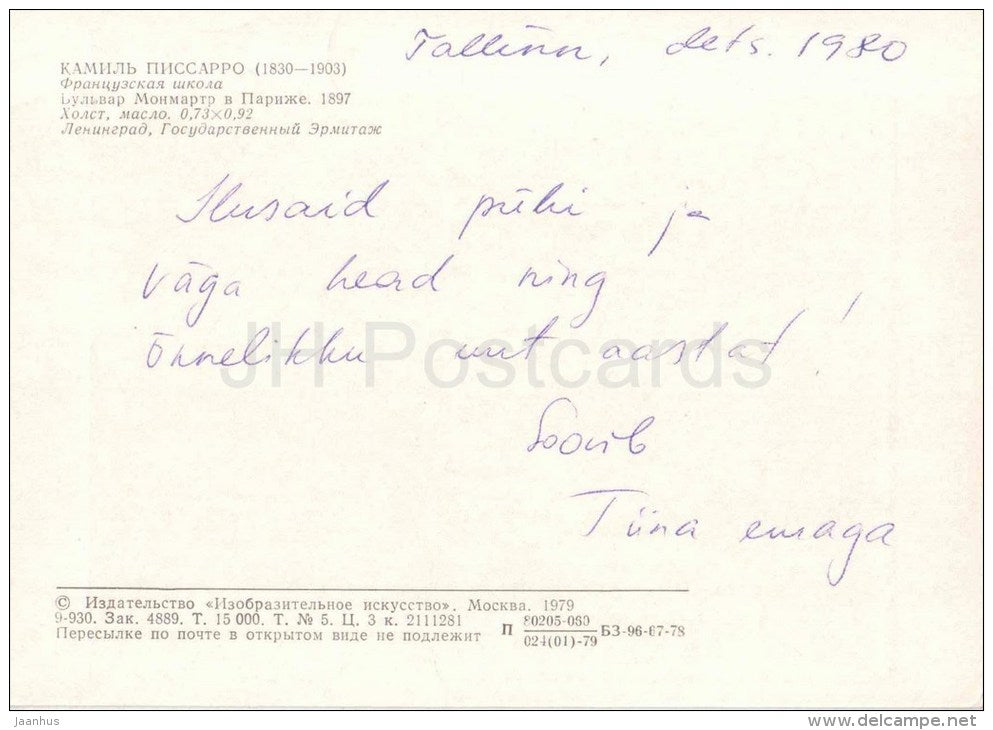 Tallinn, dets. 1980
КАМИЛЬ ПИССАРРО (1830—1903)
Французская школа
Бульвар Монмартр в Париже. 1897
Холст, масло. 0,73×0,92
Ленинград, Государственный Эрмитаж
Ilusaid pühi ja
väga head ning
õnnelikku uut aastat!
JH Postcards
Soovib
Tiina emaga
© Издательство «Изобразительное искусство». Москва. 1979
9-930. Зак. 4889. Т. 15 000. Т. № 5. Ц. 3 к. 2111281
Пересылке по почте в открытом виде не подлежит
П 80205-060
024(01)-79 БЗ-96-67-78
Jaanhus
www.delcampe.net